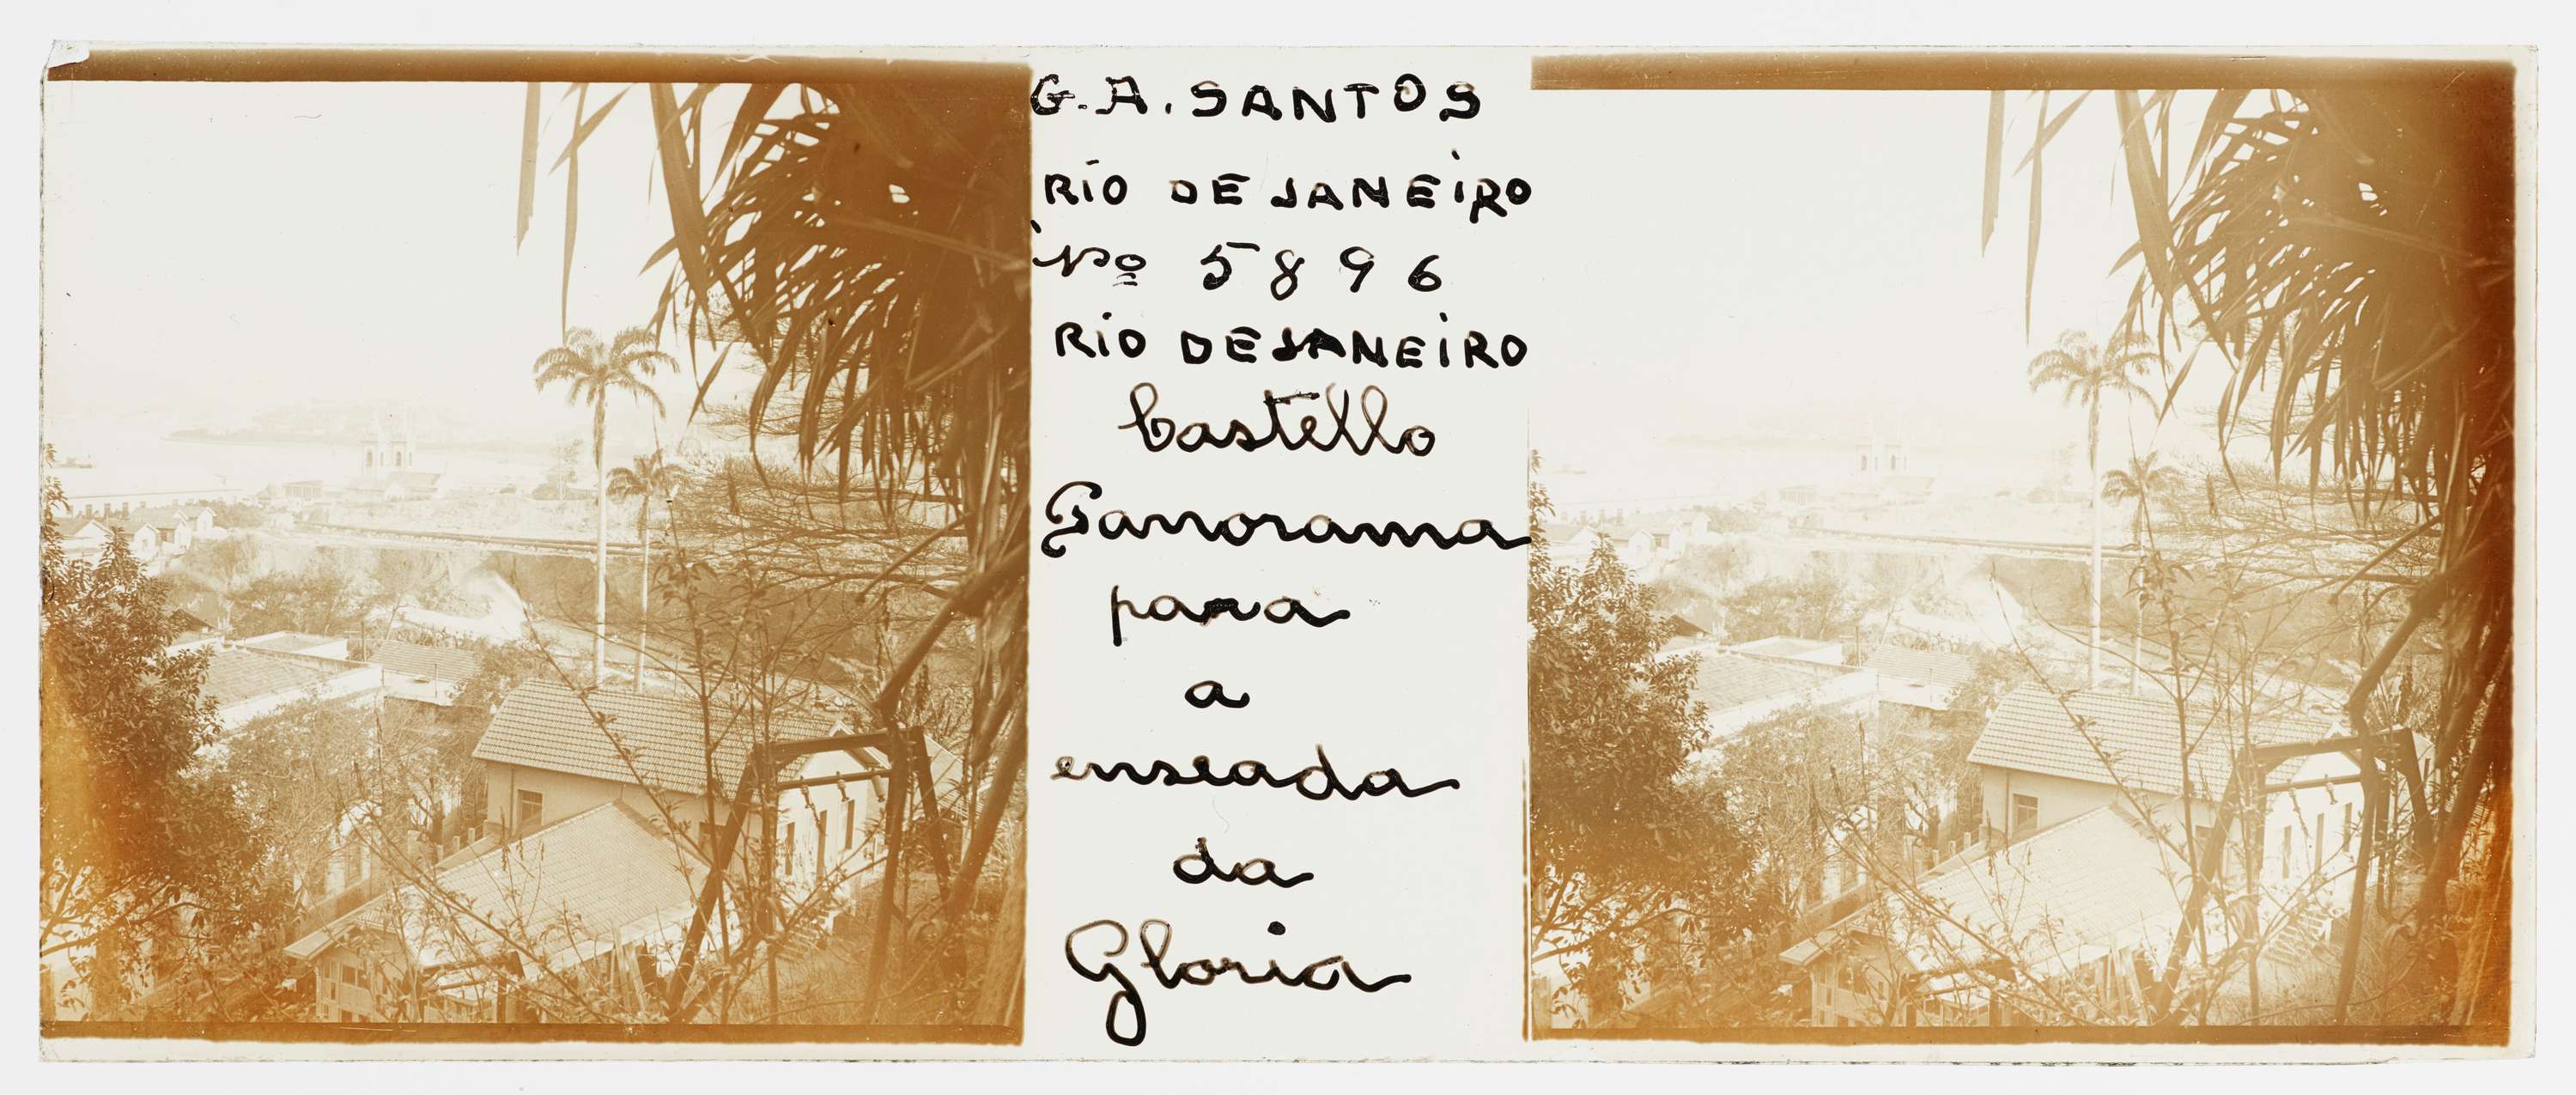 G. A. SANTOS
RIO DE JANEIRO
Nº 5896
RIO DE JANEIRO
Castello
Panorama
para
a
enseada
da
Gloria